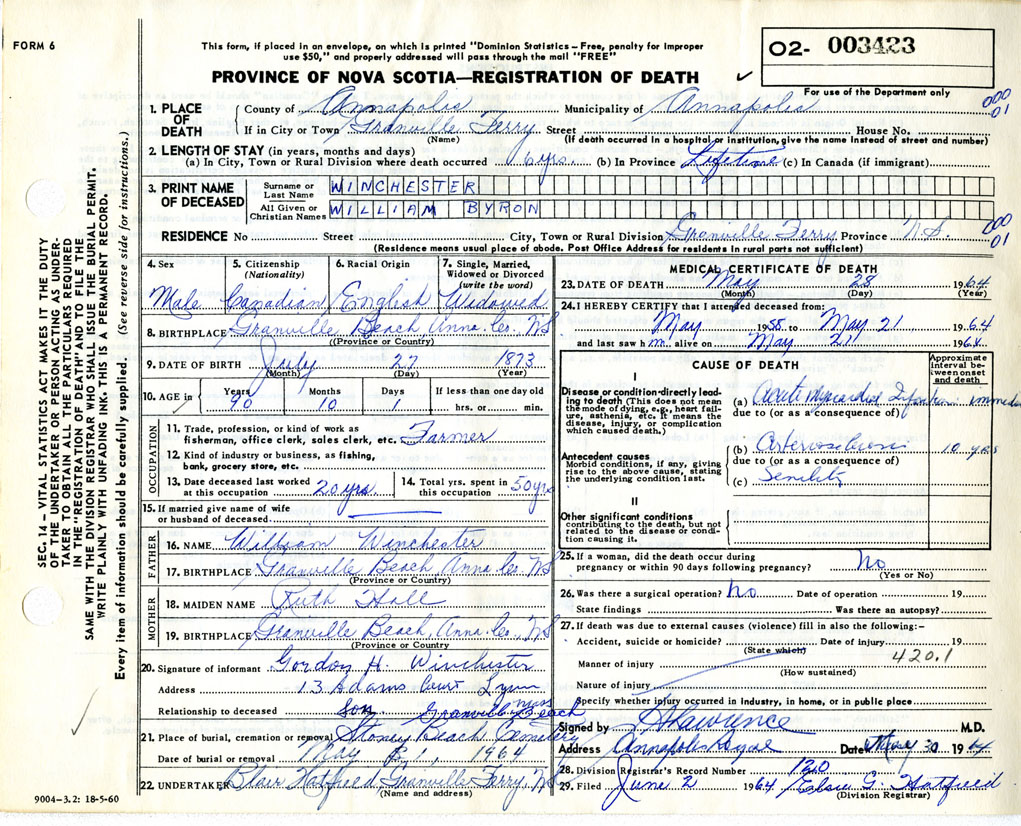 FORM 6
This form, if placed in an envelope, on which is printed "Dominion Statistics – Free, penalty for improper
use $50," and properly addressed will pass through the mail "FREE"
PROVINCE OF NOVA SCOTIA—REGISTRATION OF DEATH ✓
O2- 003423
For use of the Department only
000
01
1. PLACE OF DEATH { County of Annapolis Municipality of Annapolis
If in City or Town Granville Ferry Street House No.
(Name) (If death occurred in a hospital or institution, give name instead of street and number)
2. LENGTH OF STAY (in years, months and days)
(a) In City, Town or Rural Division where death occurred 6 yrs. (b) In Province Lifetime (c) In Canada (if immigrant)
3. PRINT NAME OF DECEASED
Surname or Last Name WINCHESTER
All Given or Christian Names WILLIAM BYRON
RESIDENCE No Street City, Town or Rural Division Granville Ferry Province N.S.
000
01
(Residence means usual place of abode. Post Office Address for residents in rural parts not sufficient)
4. Sex Male
5. Citizenship (Nationality) Canadian
6. Racial Origin English
7. Single, Married, Widowed or Divorced (write the word) Widowed
8. BIRTHPLACE Granville Beach Anna. Co. NS
(Province or Country)
9. DATE OF BIRTH July 27 1873
(Month) (Day) (Year)
10. AGE in Years 90 Months 10 Days 1 If less than one day old hrs. or min.
OCCUPATION
11. Trade, profession, or kind of work as
fisherman, office clerk, sales clerk, etc. Farmer
12. Kind of industry or business, as fishing,
bank, grocery store, etc.
13. Date deceased last worked at this occupation 20 yrs
14. Total yrs. spent in this occupation 50 yrs
15. If married give name of wife
or husband of deceased
FATHER
16. NAME William Winchester
17. BIRTHPLACE Granville Beach, Anna Co. NS
(Province or Country)
MOTHER
18. MAIDEN NAME Ruth Hall
19. BIRTHPLACE Granville Beach, Anna. Co. NS
(Province or Country)
20. Signature of informant Gordon H. Winchester
Address 13 Adams Court Lynn
Mass
Relationship to deceased Son Granville Beach
21. Place of burial, cremation or removal Stoney Beach Cemetery
Date of burial or removal May 31, 1964
22. UNDERTAKER Blair Hatfield Granville Ferry, NS
(Name and address)
9004–3.2: 18-5-60
MEDICAL CERTIFICATE OF DEATH
23. DATE OF DEATH May 28 1964
(Month) (Day) (Year)
24. I HEREBY CERTIFY that I attended deceased from:
May 1958 to May 21 1964
and last saw him alive on May 21 1964
CAUSE OF DEATH
Approximate interval between onset and death
I
Disease or condition directly leading to death (This does not mean the mode of dying, e.g., heart failure, asthenia, etc. It means the disease, injury, or complication which caused death.)
(a) Acute Myocardial Infarction
due to (or as a consequence of)
Antecedent causes
Morbid conditions, if any, giving rise to the above cause, stating the underlying condition last.
(b) 10 yrs
due to (or as a consequence of)
(c) Senility
II
Other significant conditions
contributing to the death, but not related to the disease or condition causing it.
25. If a woman, did the death occur during
pregnancy or within 90 days following pregnancy? No
(Yes or No)
26. Was there a surgical operation? No Date of operation 19
State findings Was there an autopsy?
27. If death was due to external causes (violence) fill in also the following:-
Accident, suicide or homicide? Date of injury 19
(State which)
420.1
Manner of injury
(How sustained)
Nature of injury
Specify whether injury occurred in industry, in home, or in public place
Signed by Lawrence M.D.
Address Annapolis Royal Date May 30 1964
28. Division Registrar's Record Number 120
29. Filed June 2 1964 Elsie G. Hatfield
(Division Registrar)
SEC. 14 – VITAL STATISTICS ACT MAKES IT THE DUTY
OF THE UNDERTAKER OR PERSON ACTING AS UNDER-
TAKER TO OBTAIN ALL THE PARTICULARS REQUIRED
IN THE "REGISTRATION OF DEATH" AND TO FILE THE
SAME WITH THE DIVISION REGISTRAR WHO SHALL ISSUE THE BURIAL PERMIT.
WRITE PLAINLY WITH UNFADING INK. THIS IS A PERMANENT RECORD.
Every item of information should be carefully supplied. (See reverse side for instructions.)